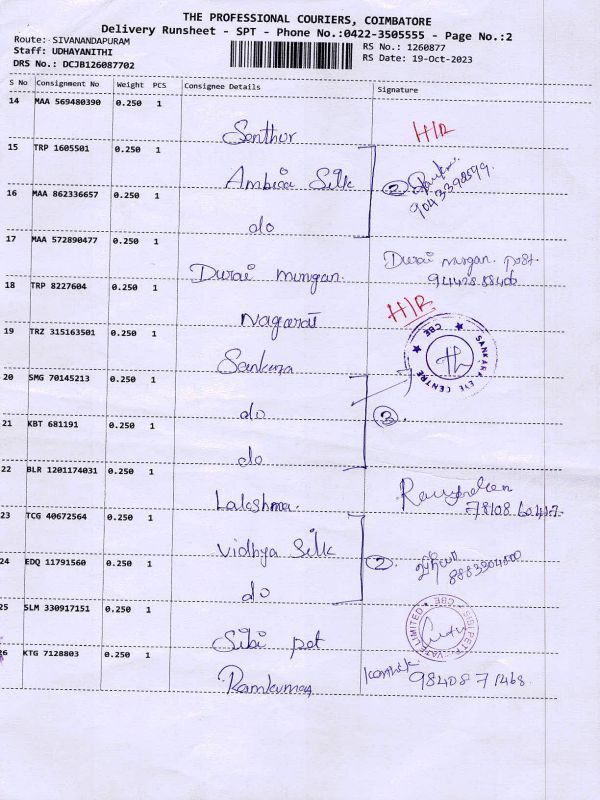 THE PROFESSIONAL COURIERS, COIMBATORE
Delivery Runsheet - SPT - Phone No.:0422-3505555 - Page No.:2
Route: SIVANANDAPURAM RS No.: 1260877
Staff: UDHAYANITHI RS Date: 19-Oct-2023
DRS No.: DCJB126087702
S No Consignment No Weight PCS Consignee Details Signature
14 MAA 569480390 0.250 1 Senthur H/R
15 TRP 1605501 0.250 1 Ambica Silk 2
16 MAA 862336657 0.250 1 do
17 MAA 572890477 0.250 1 Durai murugan. Durai murgan. post.
18 TRP 8227604 0.250 1 Nagaraj H/R
19 TRZ 315163501 0.250 1 Sankara SANKARA EYE CENTRE ★ CBE ★
20 SMG 70145213 0.250 1 do 3
21 KBT 681191 0.250 1 do
22 BLR 1201174031 0.250 1 Lakshma.
23 TCG 40672564 0.250 1 Vidhya Silk 2
24 EDQ 11791560 0.250 1 do 8883904500
25 SLM 330917151 0.250 1 Sibi pet SIBI PET P VATE LIMITED CBE
26 KTG 7128803 0.250 1 Ramkumar Karthik 98408 71468